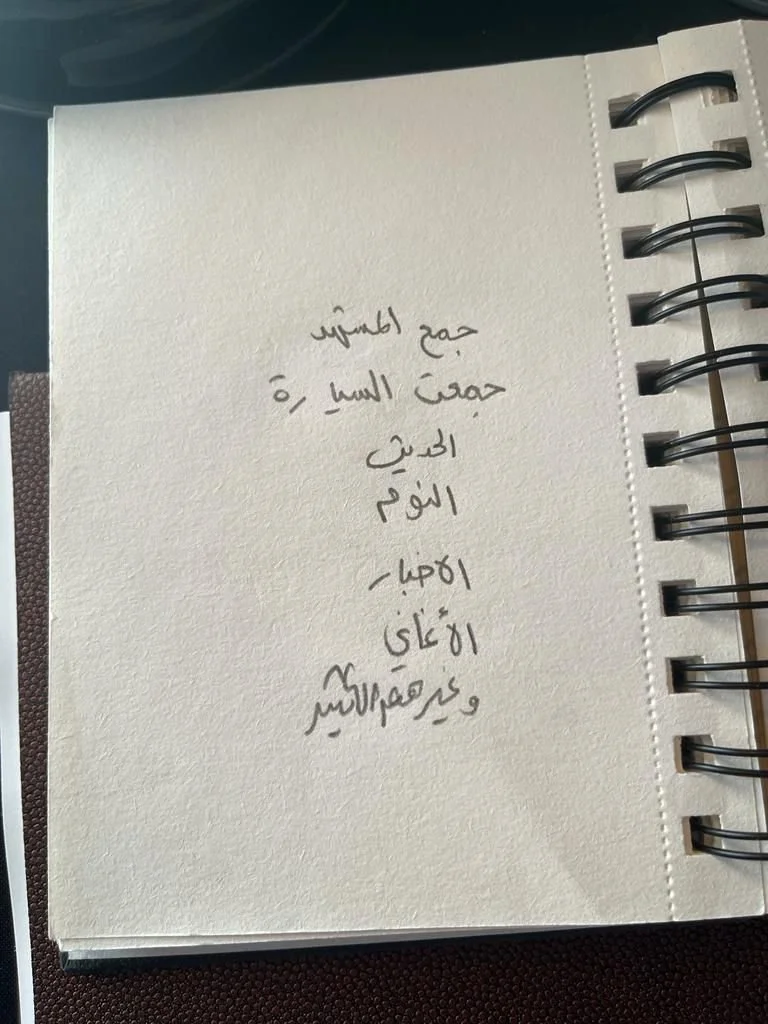 جمع المشهد
جمعت السيارة
الحديث
النوم
الاخبار
الأغاني
وغيرهم الكثير